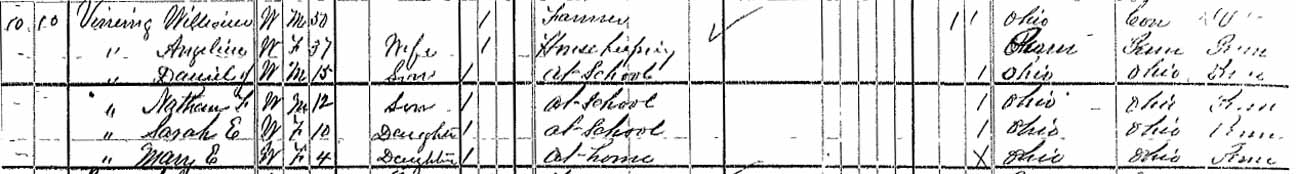 10 10 Vinring William W M 50 1 Farmer 1 1 Ohio Con
" Angeline W F 37 Wife 1 Housekeeping Penn Penn Penn
" Daniel W M 15 Son 1 at School 1 Ohio Ohio Penn
" Nathan F W M 12 Son 1 at School 1 Ohio Ohio Penn
" Sarah E W F 10 Daughter 1 at School 1 Ohio Ohio Penn
" Mary E W F 4 Daughter 1 at home X Ohio Ohio Penn